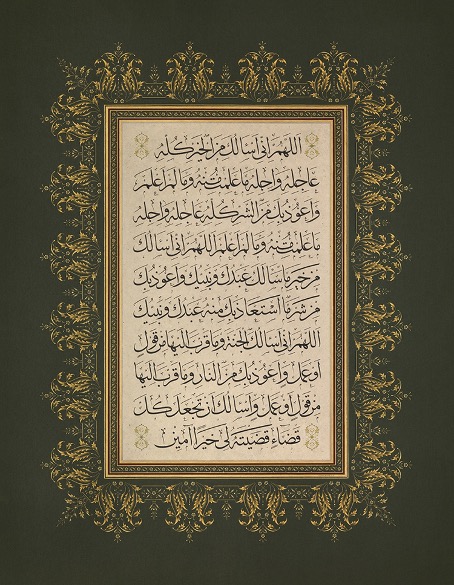 اللهم انى اسالك من الخير كله
عاجله واجله ما علمت منه وما لم اعلم
واعوذ بك من الشر كله عاجله واجله
ما علمت منه وما لم اعلم اللهم انى اسالك
من خير ما سالك عبدك ونبيك واعوذ بك
من شر ما استعاذ بك منه عبدك ونبيك
اللهم انى اسالك الجنة وما قرب اليها من قول
او عمل واعوذ بك من النار وما قرب اليها
من قول او عمل واسالك ان تجعل كل
قضاء قضيته لى خيرا امين